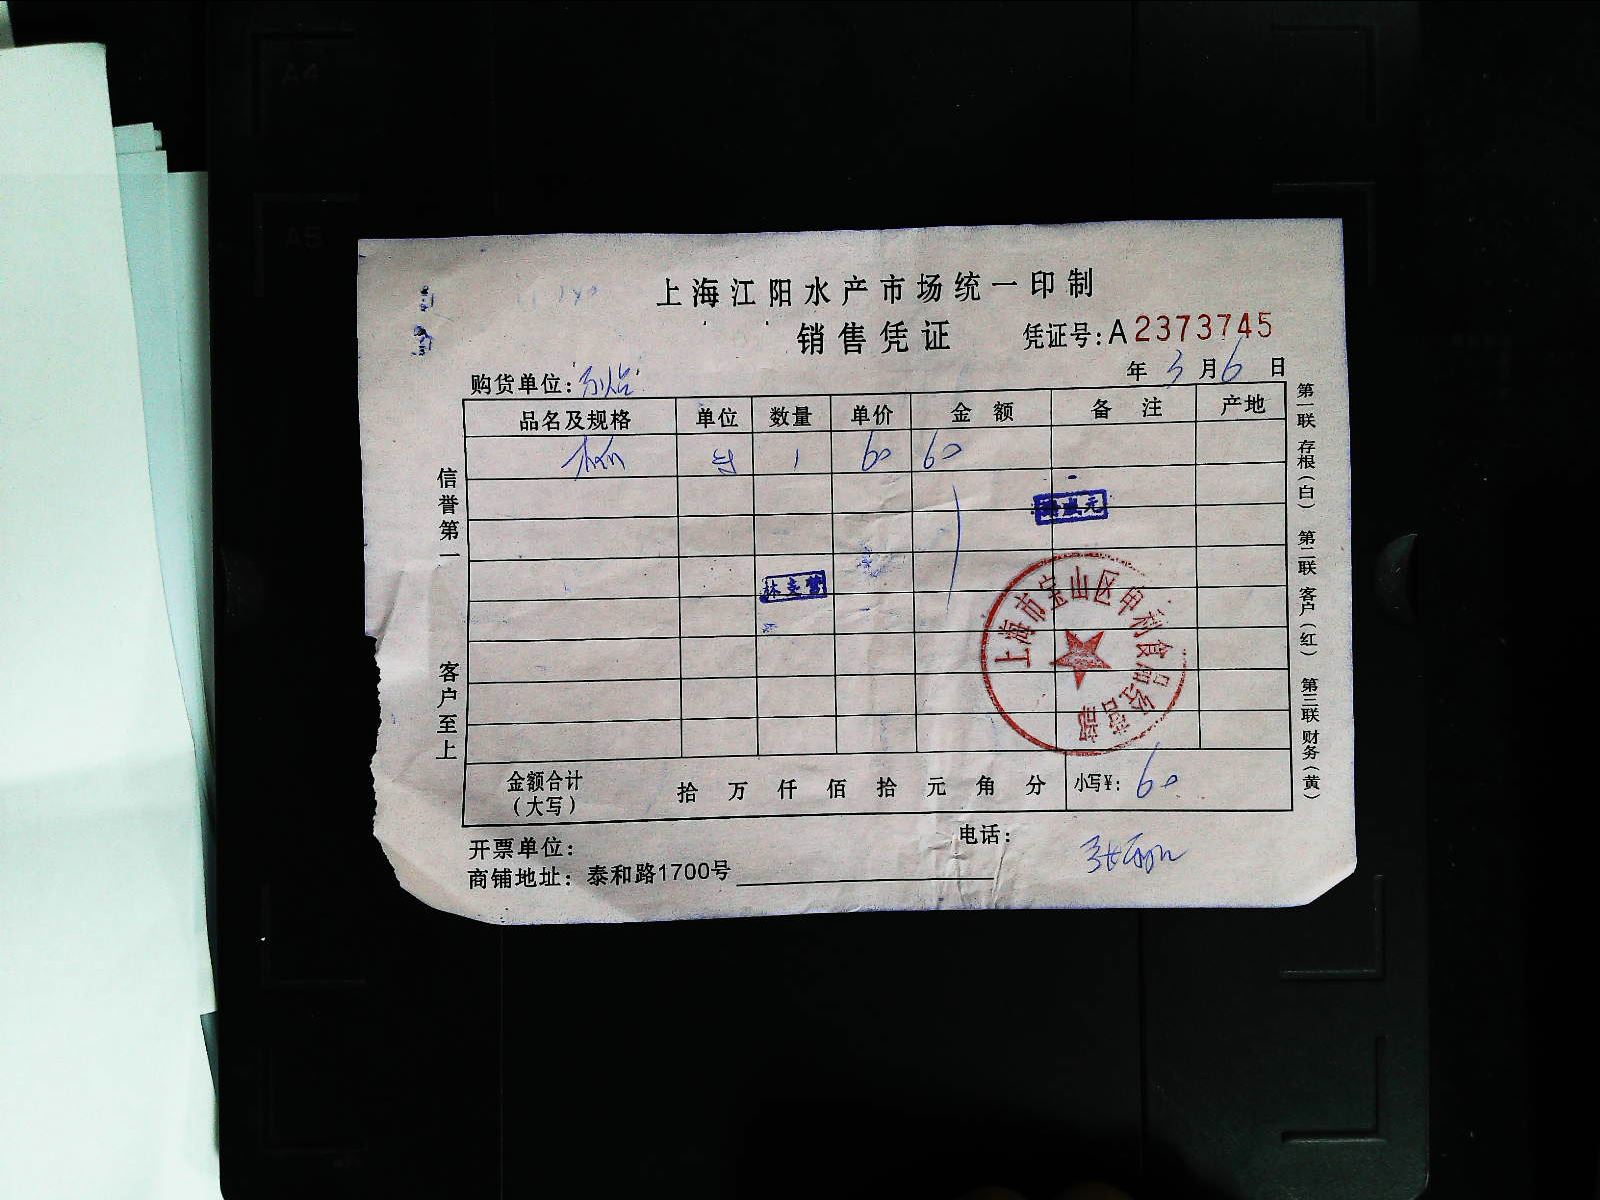 A4
A5
上海江阳水产市场统一印制
销售凭证
凭证号:A2373745
年 3 月 6 日
购货单位:
品名及规格 单位 数量 单价 金额 备注 产地
1 60 60
信誉第一
客户至上
上海市宝山区申利食品经营部
金额合计 拾 万 仟 佰 拾 元 角 分 小写¥: 60
(大写)
开票单位: 电话:
商铺地址: 泰和路1700号
第一联 存根(白) 第二联 客户(红) 第三联 财务(黄)